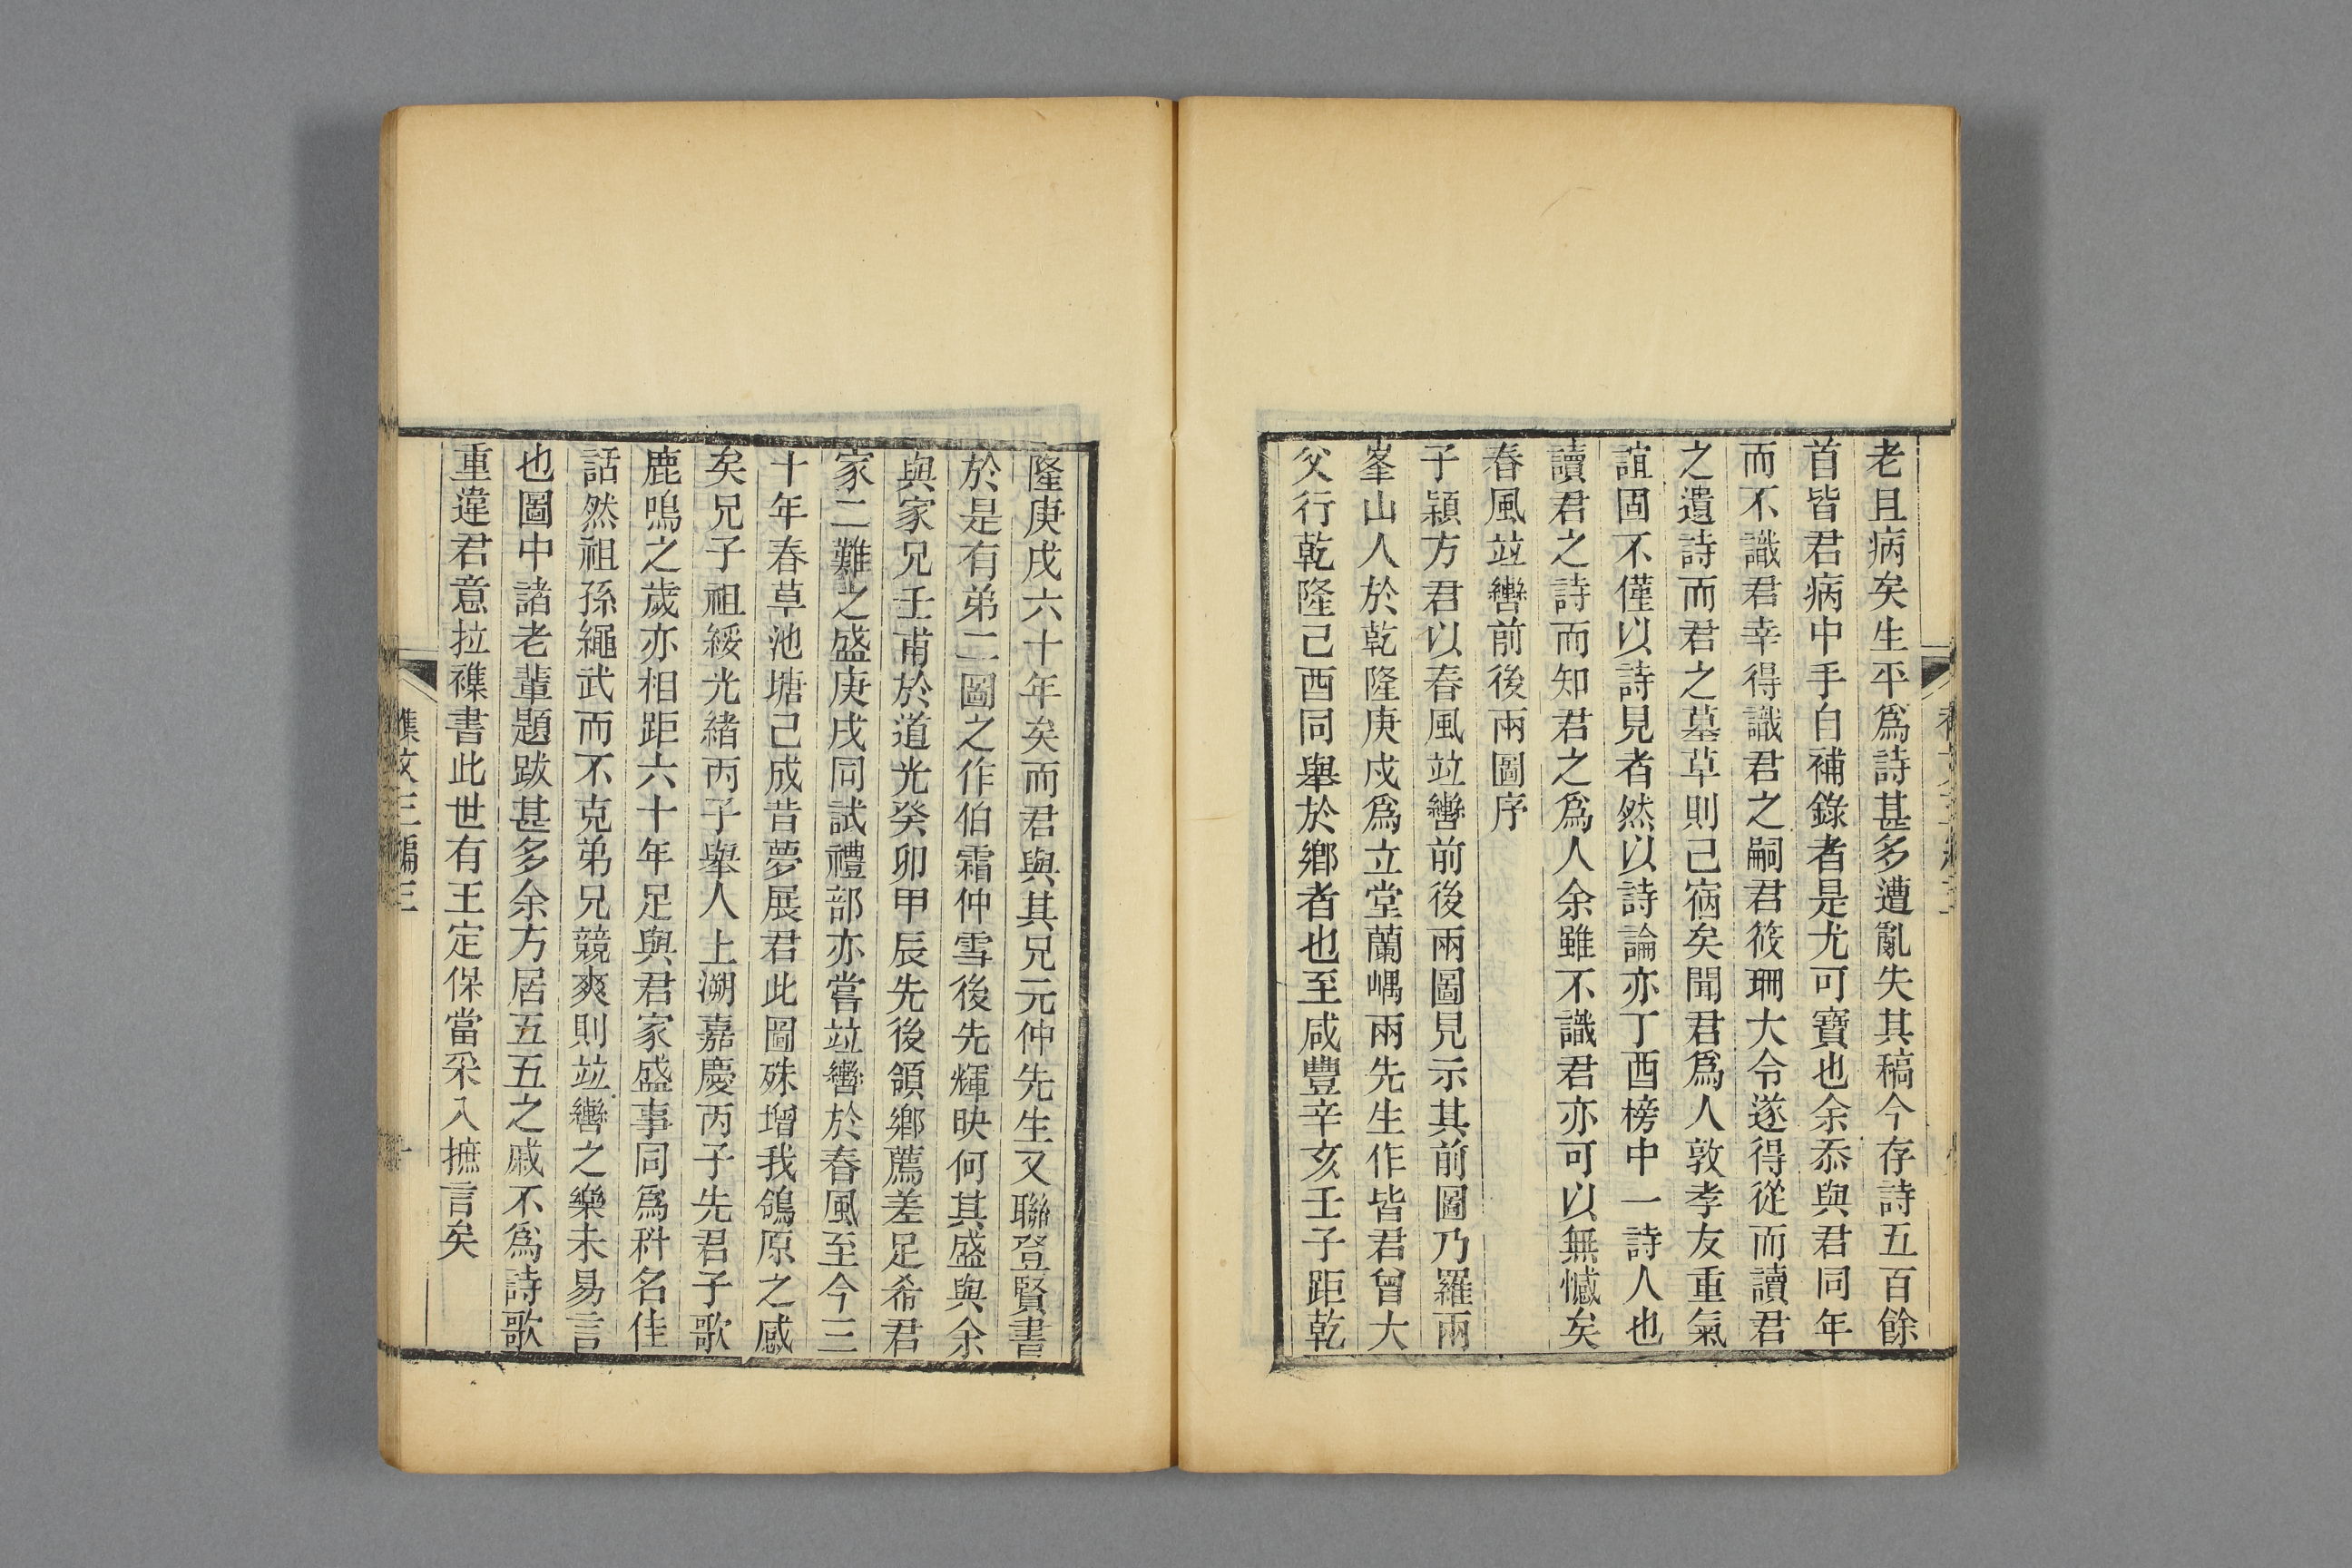 老且病矣生平爲詩甚多遭亂失其稿今存詩五百餘
首皆君病中手自補錄者是尤可寶也余忝與君同年
而不識君幸得識君之嗣君筱珊大令遂得從而讀君
之遺詩而君之墓草則己宿矣聞君爲人敦孝友重氣
誼固不僅以詩見者然以詩論亦丁酉榜中一詩人也
讀君之詩而知君之爲人余雖不識君亦可以無憾矣
春風竝轡前後兩圖序
子穎方君以春風竝轡前後兩圖見示其前圖乃羅兩
峯山人於乾隆庚戌爲立堂蘭嵎兩先生作皆君曾大
父行乾隆己酉同舉於鄉者也至咸豐辛亥壬子距乾
隆庚戌六十年矣而君與其兄元仲先生又聯登賢書
於是有弟二圖之作伯霜仲雪後先輝映何其盛與余
與家兄壬甫於道光癸卯甲辰先後領鄉薦差足希君
家二難之盛庚戌同試禮部亦嘗竝轡於春風至今三
十年春草池塘己成昔夢展君此圖殊增我鴒原之感
矣兄子祖綏光緒丙子舉人上溯嘉慶丙子先君子歌
鹿鳴之歲亦相距六十年足與君家盛事同爲科名佳
話然祖孫繩武而不克弟兄競爽則竝轡之樂未易言
也圖中諸老輩題跋甚多余方居五五之戚不爲詩歌
重違君意拉襍書此世有王定保當采入摭言矣
襍文三編三